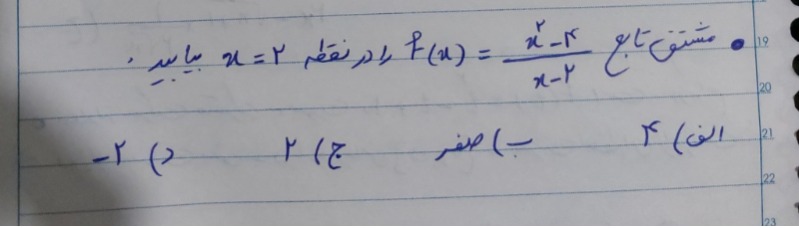 • مشتق تابع f(x) = (x²-۴)/(x-۲) را در نقطه x=۲ بیابید.
الف) ۴ ب) صفر ج) ۲ د) -۲
19
20
21
22
23